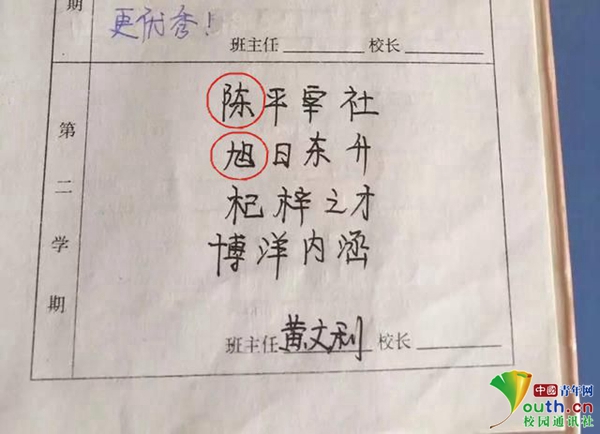 期
更优秀！
班主任________校长________
第二学期
陈平宰社
旭日东升
杞梓之才
博洋内涵
班主任黄文利 校长________
中國青年网
Youth.cn
校园通讯社